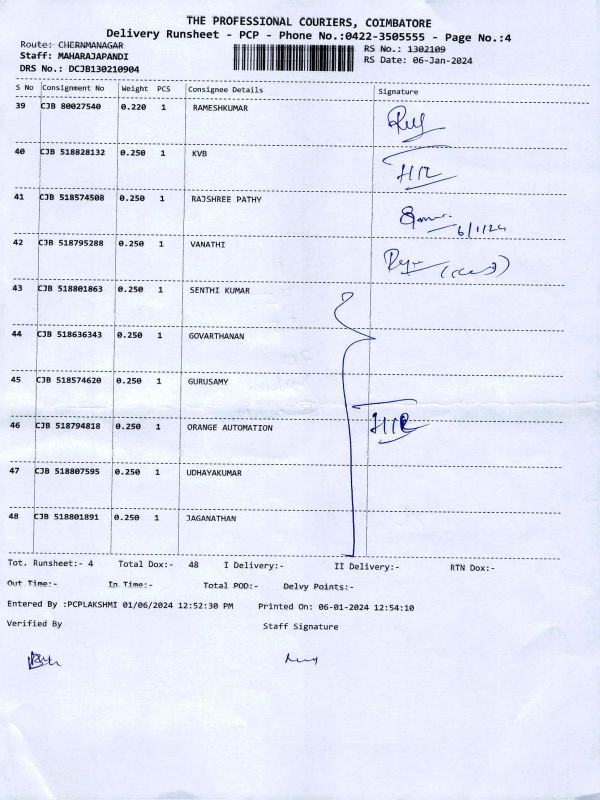 THE PROFESSIONAL COURIERS, COIMBATORE
Delivery Runsheet - PCP - Phone No.:0422-3505555 - Page No.:4
Route: CHERNMANAGAR RS No.: 1302109
Staff: MAHARAJAPANDI RS Date: 06-Jan-2024
DRS No.: DCJB130210904
S No Consignment No Weight PCS Consignee Details Signature
39 CJB 80027540 0.220 1 RAMESHKUMAR
40 CJB 518828132 0.250 1 KVB
41 CJB 518574508 0.250 1 RAJSHREE PATHY
6/1/24
42 CJB 518795288 0.250 1 VANATHI
43 CJB 518801863 0.250 1 SENTHI KUMAR
44 CJB 518636343 0.250 1 GOVARTHANAN
45 CJB 518574620 0.250 1 GURUSAMY
46 CJB 518794818 0.250 1 ORANGE AUTOMATION
47 CJB 518807595 0.250 1 UDHAYAKUMAR
48 CJB 518801891 0.250 1 JAGANATHAN
Tot. Runsheet:- 4 Total Dox:- 48 I Delivery:- II Delivery:- RTN Dox:-
Out Time:- In Time:- Total POD:- Delvy Points:-
Entered By :PCPLAKSHMI 01/06/2024 12:52:30 PM Printed On: 06-01-2024 12:54:10
Verified By Staff Signature